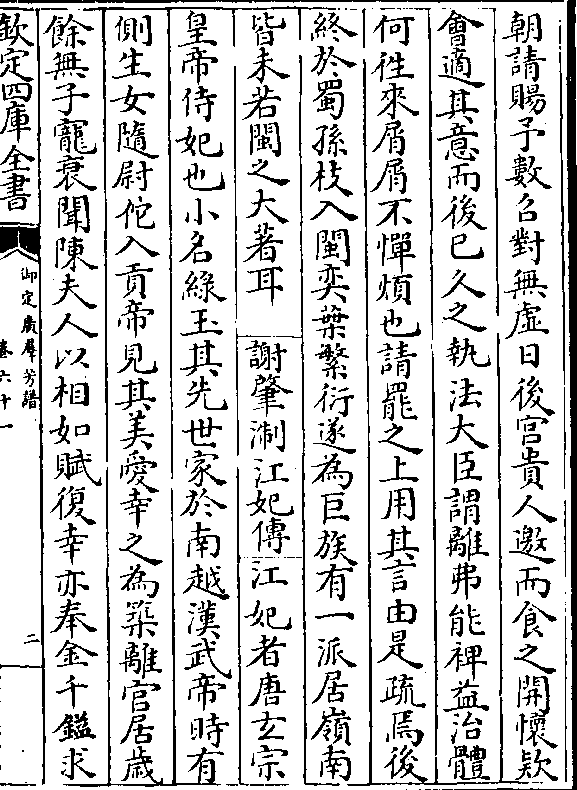 朝請賜予數召對無虛日後宮貴人邀而食之開懷欵
會適其意而後已久之執法大臣謂離弗能裨益治體
何徃來屑屑不憚煩也請罷之上用其言由是疏焉後
終於蜀孫枝入閩奕葉繁衍遂為巨族有一派居嶺南
皆未若閩之大著耳 謝肇淛江妃傳 江妃者唐玄宗
皇帝侍妃也小名綠玉其先世家於南越漢武帝時有
側生女隨尉佗入貢帝見其美愛幸之為築離宮居歲
餘無子寵衰聞陳夫人以相如賦復幸亦奉金千鎰求
欽定四庫全書
御定廣羣芳譜
卷六十一
二